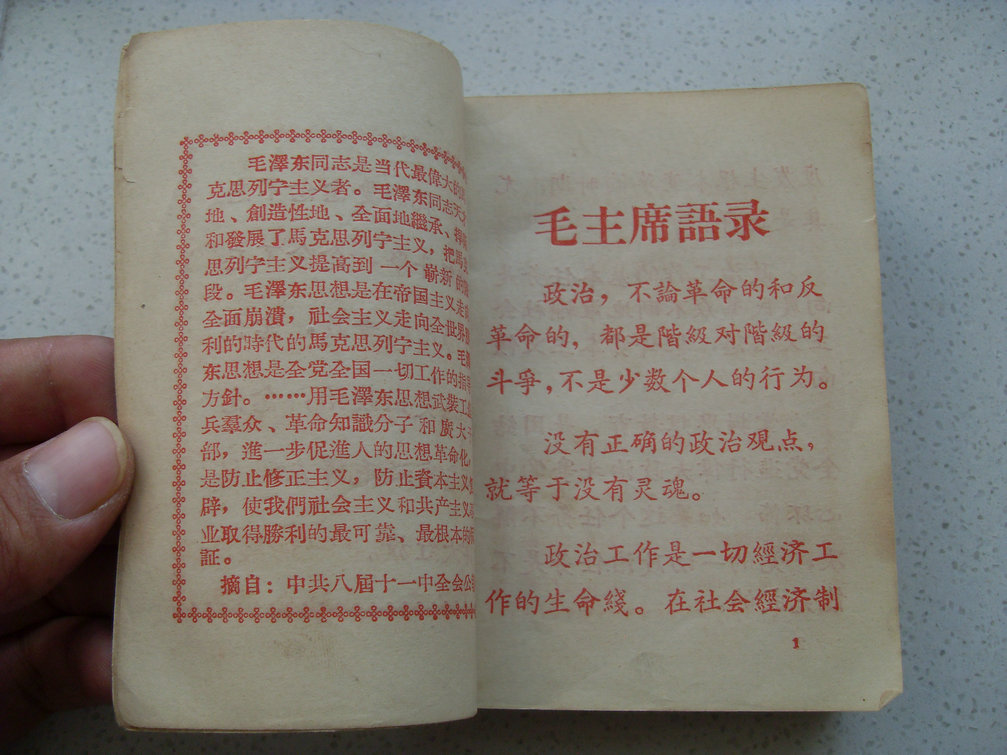 毛澤东同志是当代最偉大的
克思列宁主义者。毛澤东同志天
地、創造性地、全面地繼承、
和發展了馬克思列宁主义，把馬
思列宁主义提高到一个嶄新的
段。毛澤东思想是在帝国主义走向
全面崩潰，社会主义走向全世界
利的時代的馬克思列宁主义。毛
东思想是全党全国一切工作的指
方針。……用毛澤东思想武裝工
兵羣众、革命知識分子和廣大
部，進一步促進人的思想革命化，
是防止修正主义，防止資本主义
辟，使我們社会主义和共产主义
业取得勝利的最可靠、最根本的
証。
摘自：中共八届十一中全会公
毛主席語录
政治，不論革命的和反
革命的，都是階級对階級的
斗爭，不是少数个人的行为。
没有正确的政治观点，
就等于没有灵魂。
政治工作是一切經济工
作的生命綫。在社会經济制
1